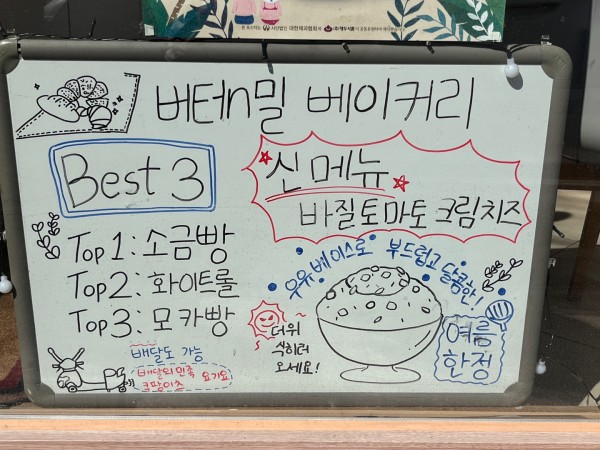 사단법인 대한제과협회
버터n밀 베이커리
Best 3
신메뉴
바질토마토크림치즈
Top 1 : 소금빵
Top 2 : 화이트롤
Top 3 : 모카빵
우유베이스로 부드럽고 달콤한!
더위
식히러
오세요!
여름
한정
배달도 가능
배달의민족 요기요
쿠팡이츠